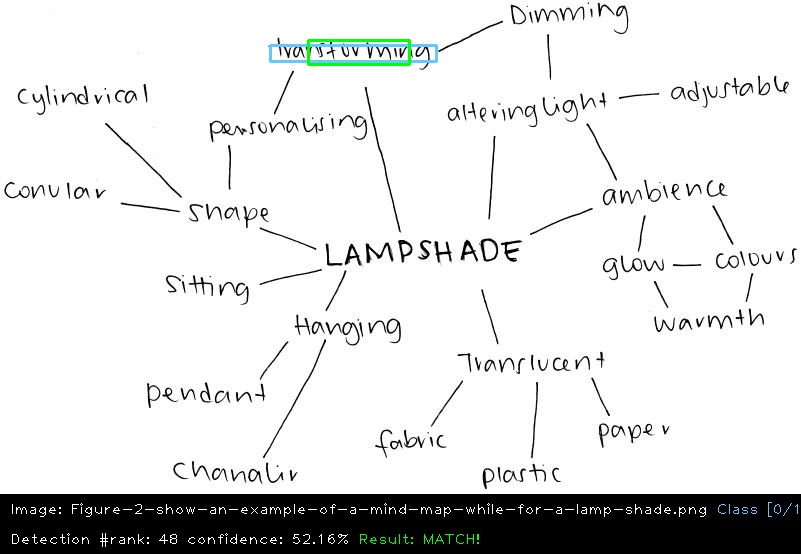 Dimming
Transforming
altering light
adjustable
cylindrical
personalising
conular
shape
ambience
LAMPSHADE
glow
colours
sitting
warmth
Hanging
Translucent
pendant
fabric
paper
chanaliv
plastic
Image: Figure-2-show-an-example-of-a-mind-map-while-for-a-lamp-shade.png Class [0/1
Detection #rank: 48 confidence: 52.16% Result: MATCH!